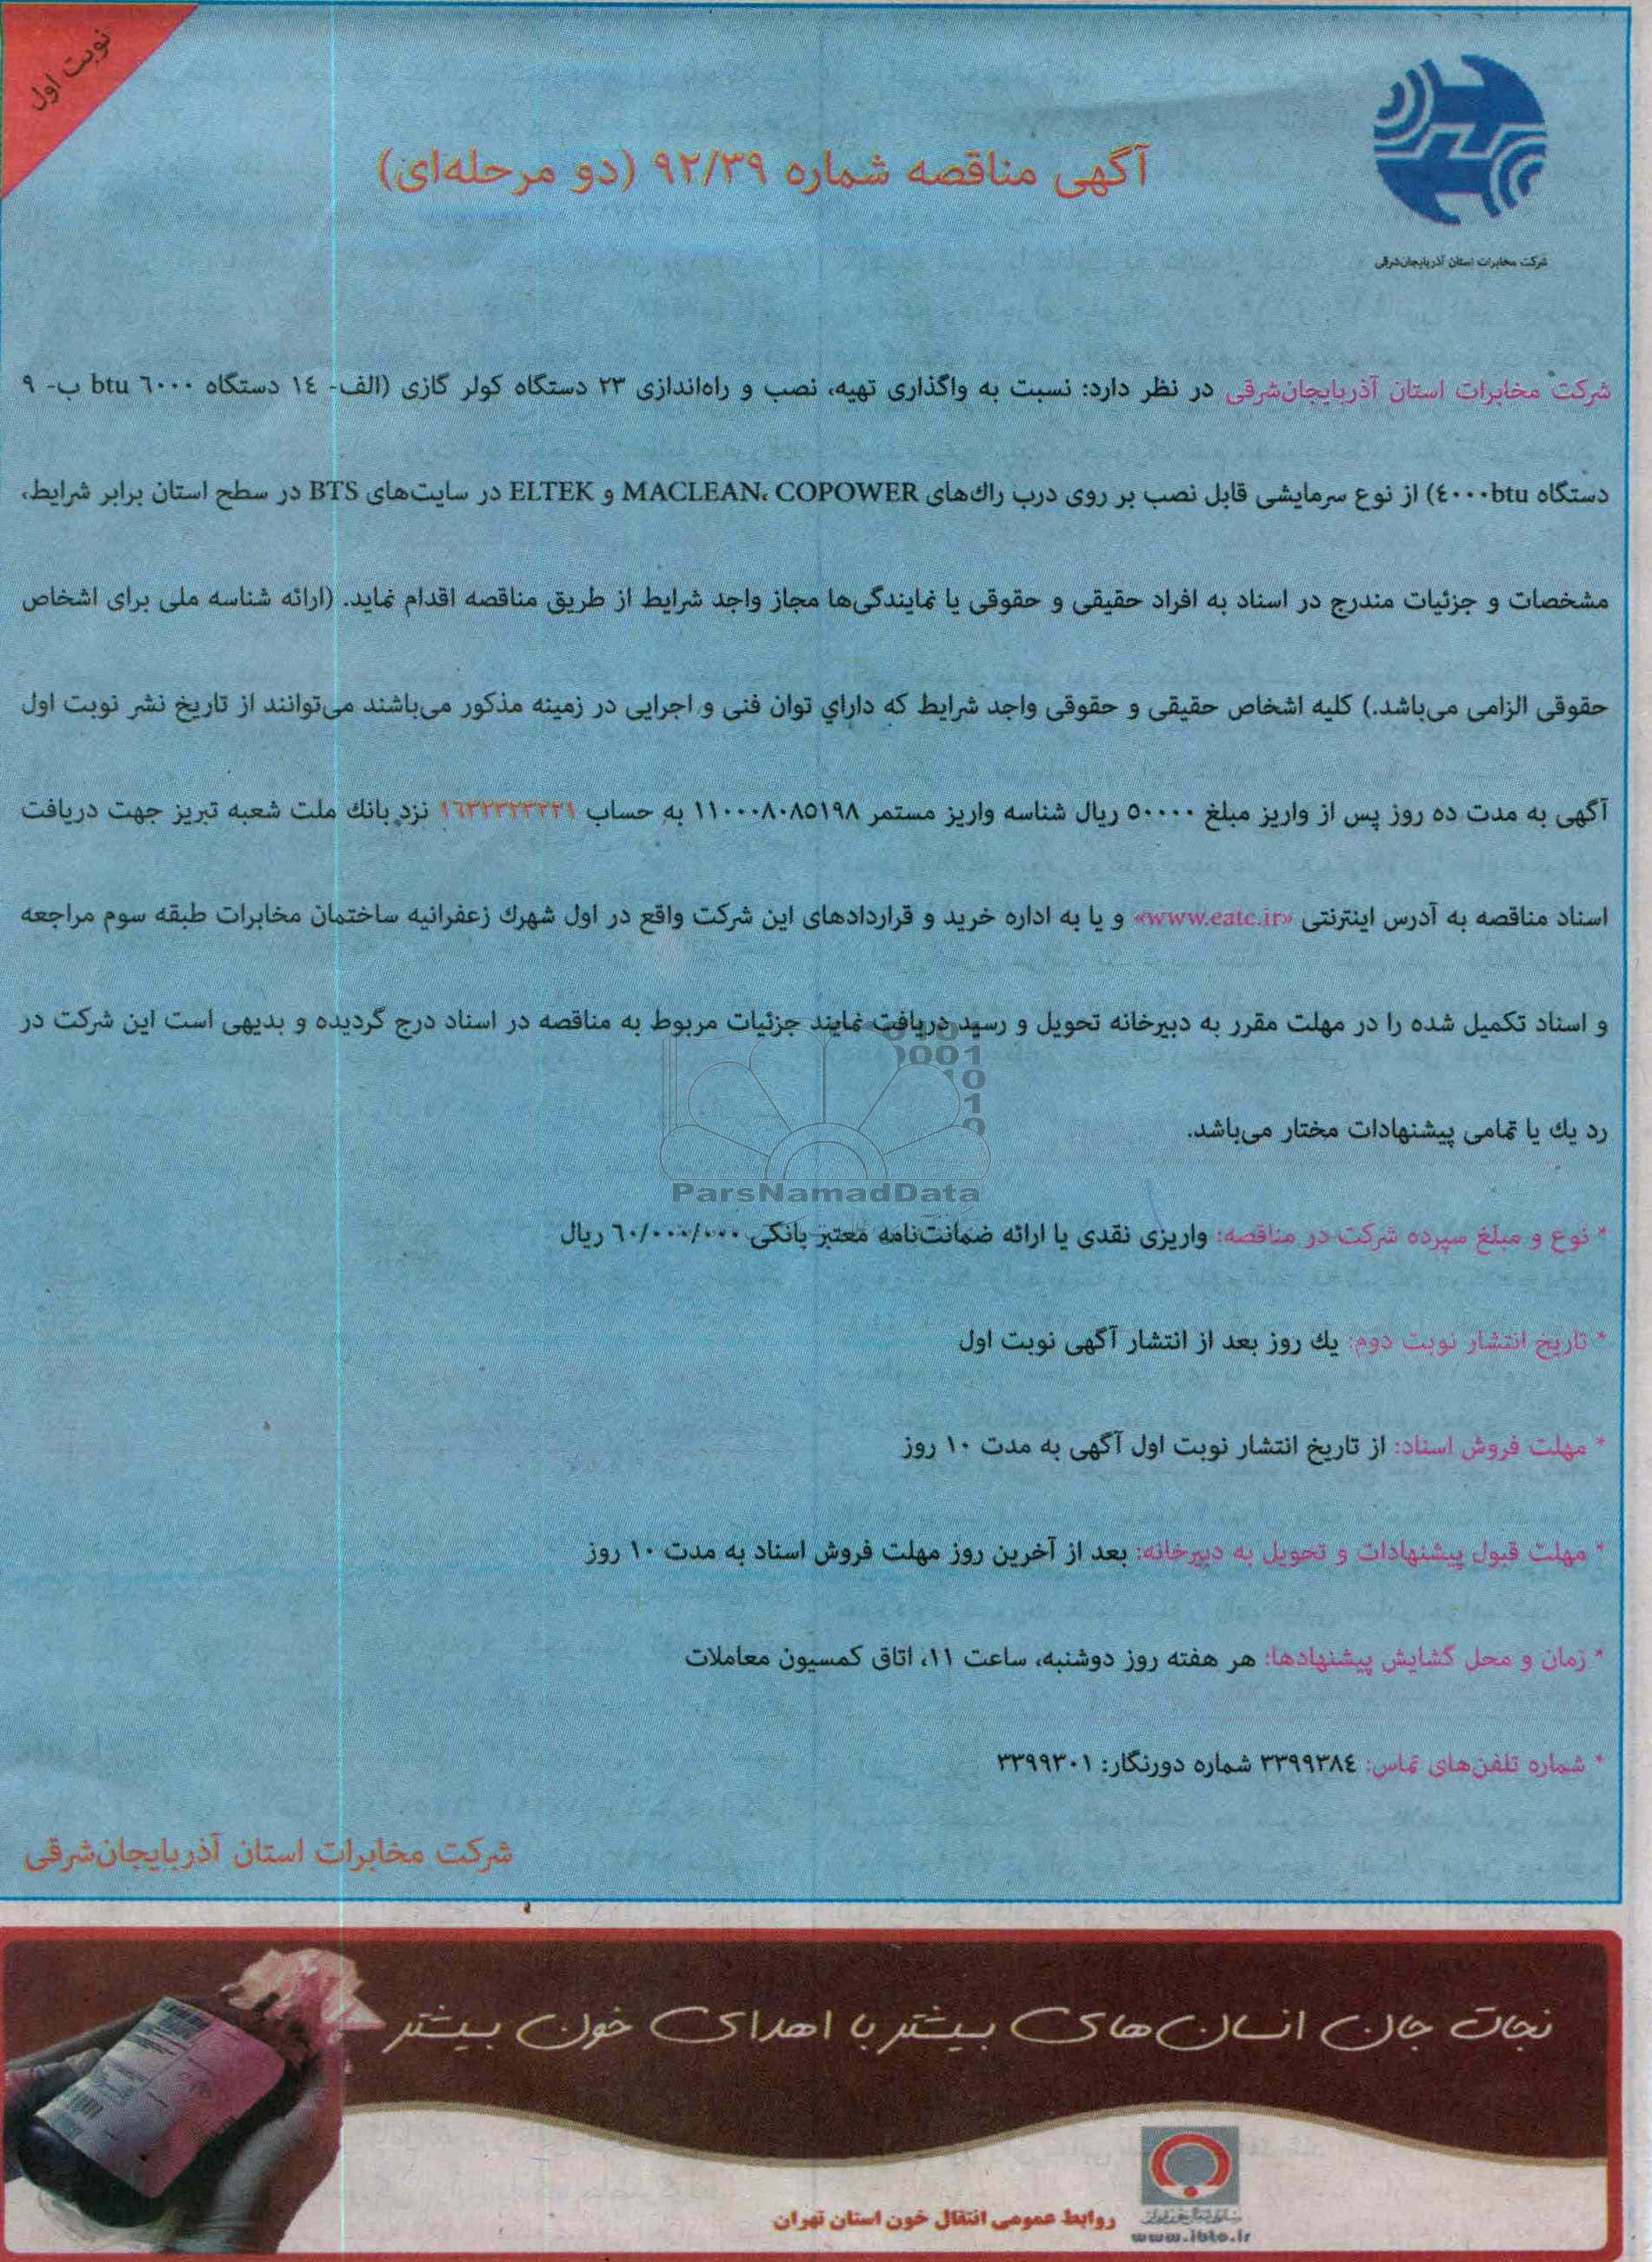 نوبت اول
شرکت مخابرات استان آذربایجان‌شرقی
آگهی مناقصه شماره ۹۲/۳۹ (دو مرحله‌ای)
شرکت مخابرات استان آذربایجان‌شرقی در نظر دارد: نسبت به واگذاری تهیه، نصب و راه‌اندازی ۲۳ دستگاه کولر گازی (الف- ١٤ دستگاه ٦٠٠٠ btu ب- ۹
دستگاه ٤٠٠٠btu) از نوع سرمایشی قابل نصب بر روی درب راك‌های MACLEAN، COPOWER و ELTEK در سایت‌های BTS در سطح استان برابر شرایط،
مشخصات و جزئیات مندرج در اسناد به افراد حقیقی و حقوقی یا نمایندگی‌ها مجاز واجد شرایط از طریق مناقصه اقدام نماید. (ارائه شناسه ملی برای اشخاص
حقوقی الزامی می‌باشد.) کلیه اشخاص حقیقی و حقوقی واجد شرایط که داراي توان فنی و اجرایی در زمینه مذکور می‌باشند می‌توانند از تاریخ نشر نوبت اول
آگهی به مدت ده روز پس از واریز مبلغ ۵۰۰۰۰ ریال شناسه واریز مستمر ۱۱۰۰۰۸۰۸۵۱۹۸ به حساب نزد بانك ملت شعبه تبریز جهت دریافت
اسناد مناقصه به آدرس اینترنتی «www.eatc.ir» و یا به اداره خرید و قراردادهای این شرکت واقع در اول شهرك زعفرانیه ساختمان مخابرات طبقه سوم مراجعه
و اسناد تکمیل شده را در مهلت مقرر به دبیرخانه تحویل و رسید دریافت نمایند جزئیات مربوط به مناقصه در اسناد درج گردیده و بدیهی است این شرکت در
رد یك یا تمامی پیشنهادات مختار می‌باشد.
ParsNamadData
* نوع و مبلغ سپرده شرکت در مناقصه: واریزی نقدی یا ارائه ضمانت‌نامه معتبر بانکی ٦٠/٠٠٠/٠٠٠ ریال
* تاریخ انتشار نوبت دوم: یك روز بعد از انتشار آگهی نوبت اول
* مهلت فروش اسناد: از تاریخ انتشار نوبت اول آگهی به مدت ۱۰ روز
* مهلت قبول پیشنهادات و تحویل به دبیرخانه: بعد از آخرین روز مهلت فروش اسناد به مدت ۱۰ روز
* زمان و محل گشایش پیشنهادها: هر هفته روز دوشنبه، ساعت ۱۱، اتاق کمسیون معاملات
* شماره تلفن‌های تماس: ۳۳۹۹۳۸٤ شماره دورنگار: ۳۳۹۹۳۰۱
شرکت مخابرات استان آذربایجان‌شرقی
نجات جان انسان‌های بیشتر با اهدای خون بیشتر
روابط عمومی انتقال خون استان تهران
www.ibto.ir